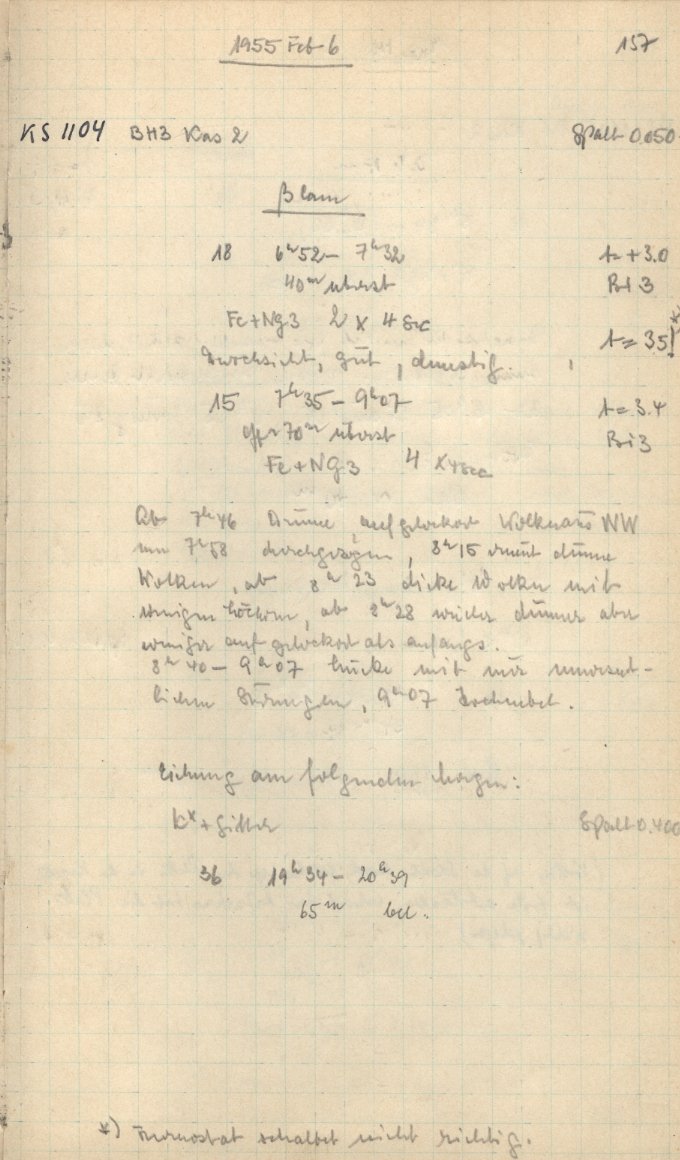 1955 Feb 6 157
KS 1104 BH3 Kas 2 Spalt 0.050
β Cam
18 6h52 – 7h32 t = +3.0
40m überst Bi 3
Fe+Ng3 2 x 4 Sec t = 35! *
Durchsicht, gut, dunstig
15 7h35 – 9h07 t = 3.4
70m überst Bi 3
Fe+Ng3 4 x 4sec
Ab 7h46 Dünne aufgelockert Wolken aus NW
um 7h58 durchgezogen, 8h15 erneut dünne
Wolken, ab 8h23 dicke Wolken mit
einigen Löchern, ab 8h28 wieder dünner aber
weniger aufgelockert als anfangs.
8h40 – 9h07 Lücke mit nur unwesent-
lichen Störungen, 9h07 Hochnebel.
Eichung am folgenden Morgen:
K* + Gitter Spalt 0.400
36 19h34 – 20h39
65m bel.
*) Thermostat schaltet nicht richtig.